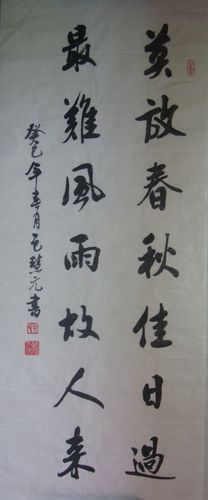 莫放春秋佳日過
最難風雨故人来
癸巳年春月
元書